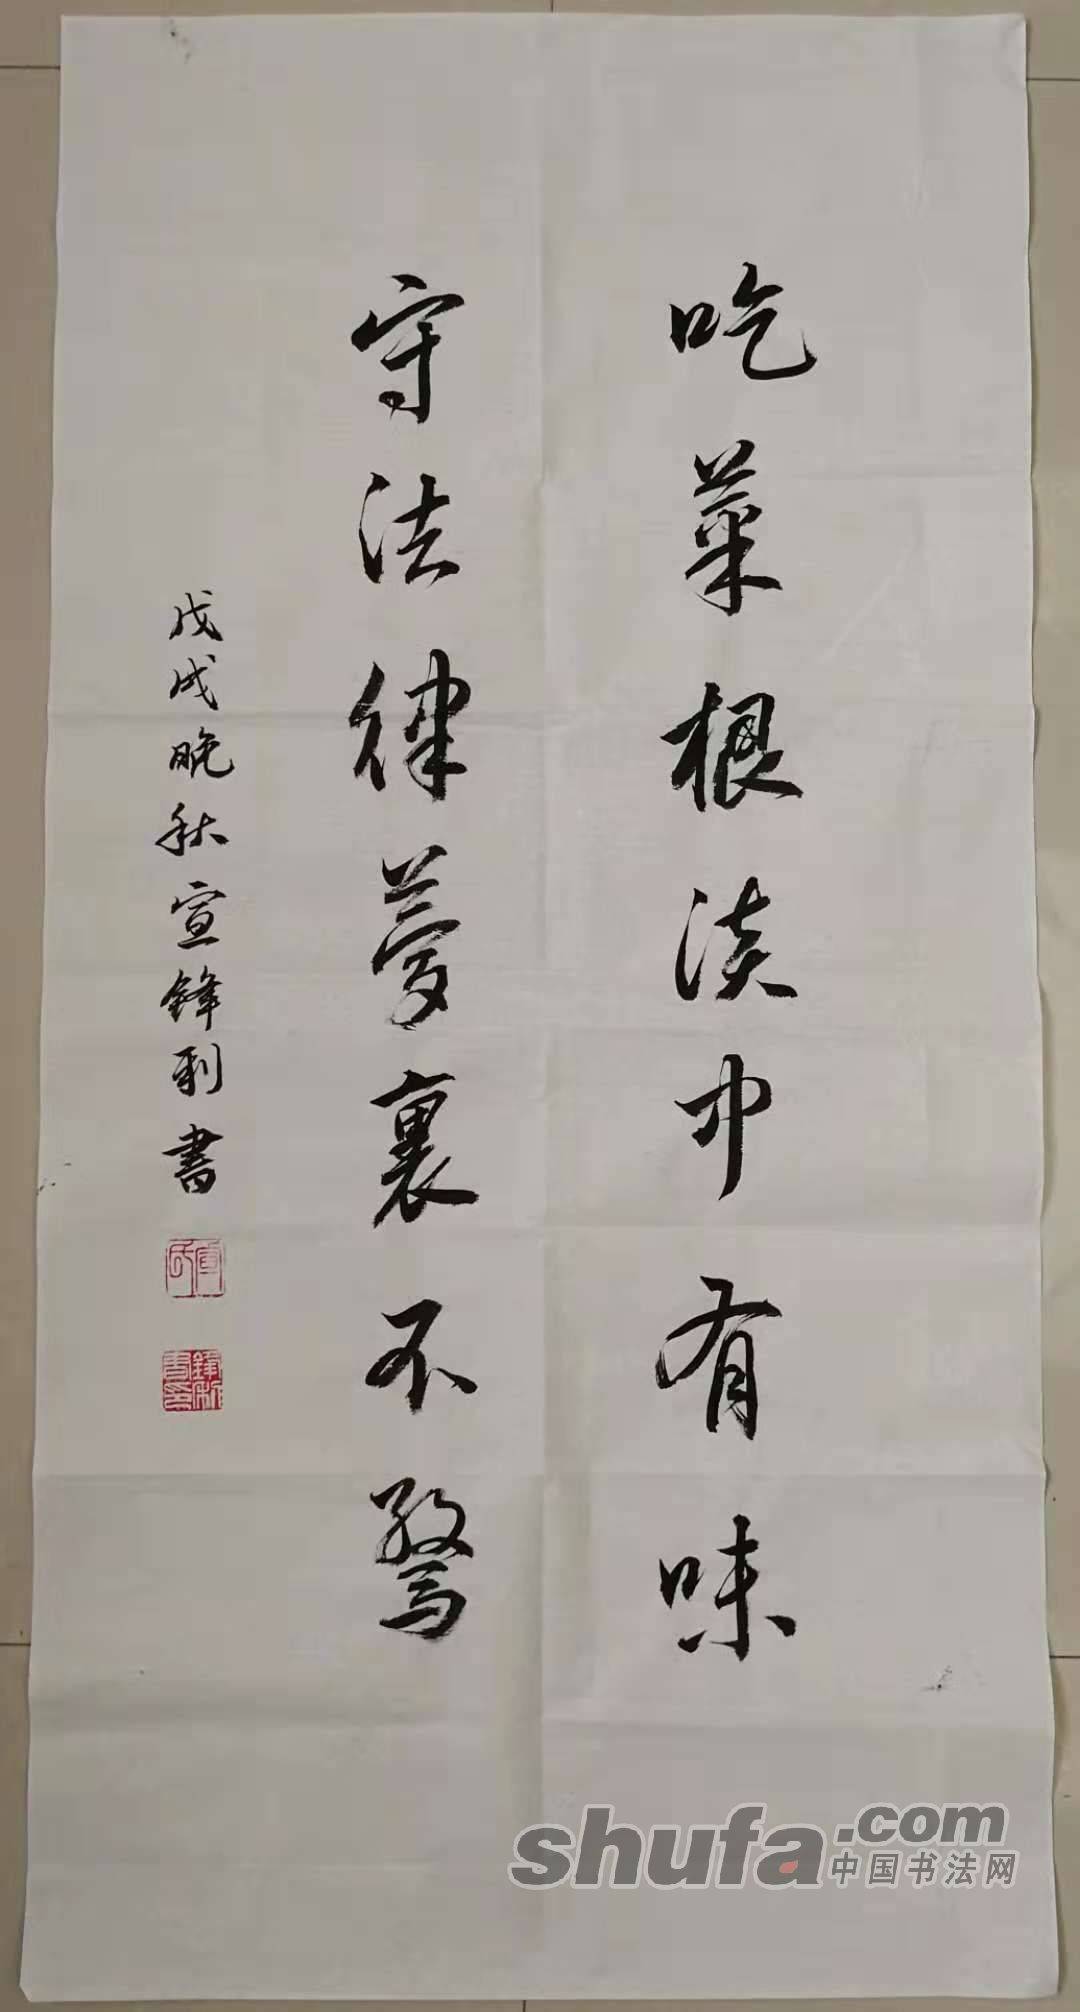 吃菜根淡中有味
守法律夢裏不驚
戊戌晚秋宣鋒利書
shufa.com
中国书法网